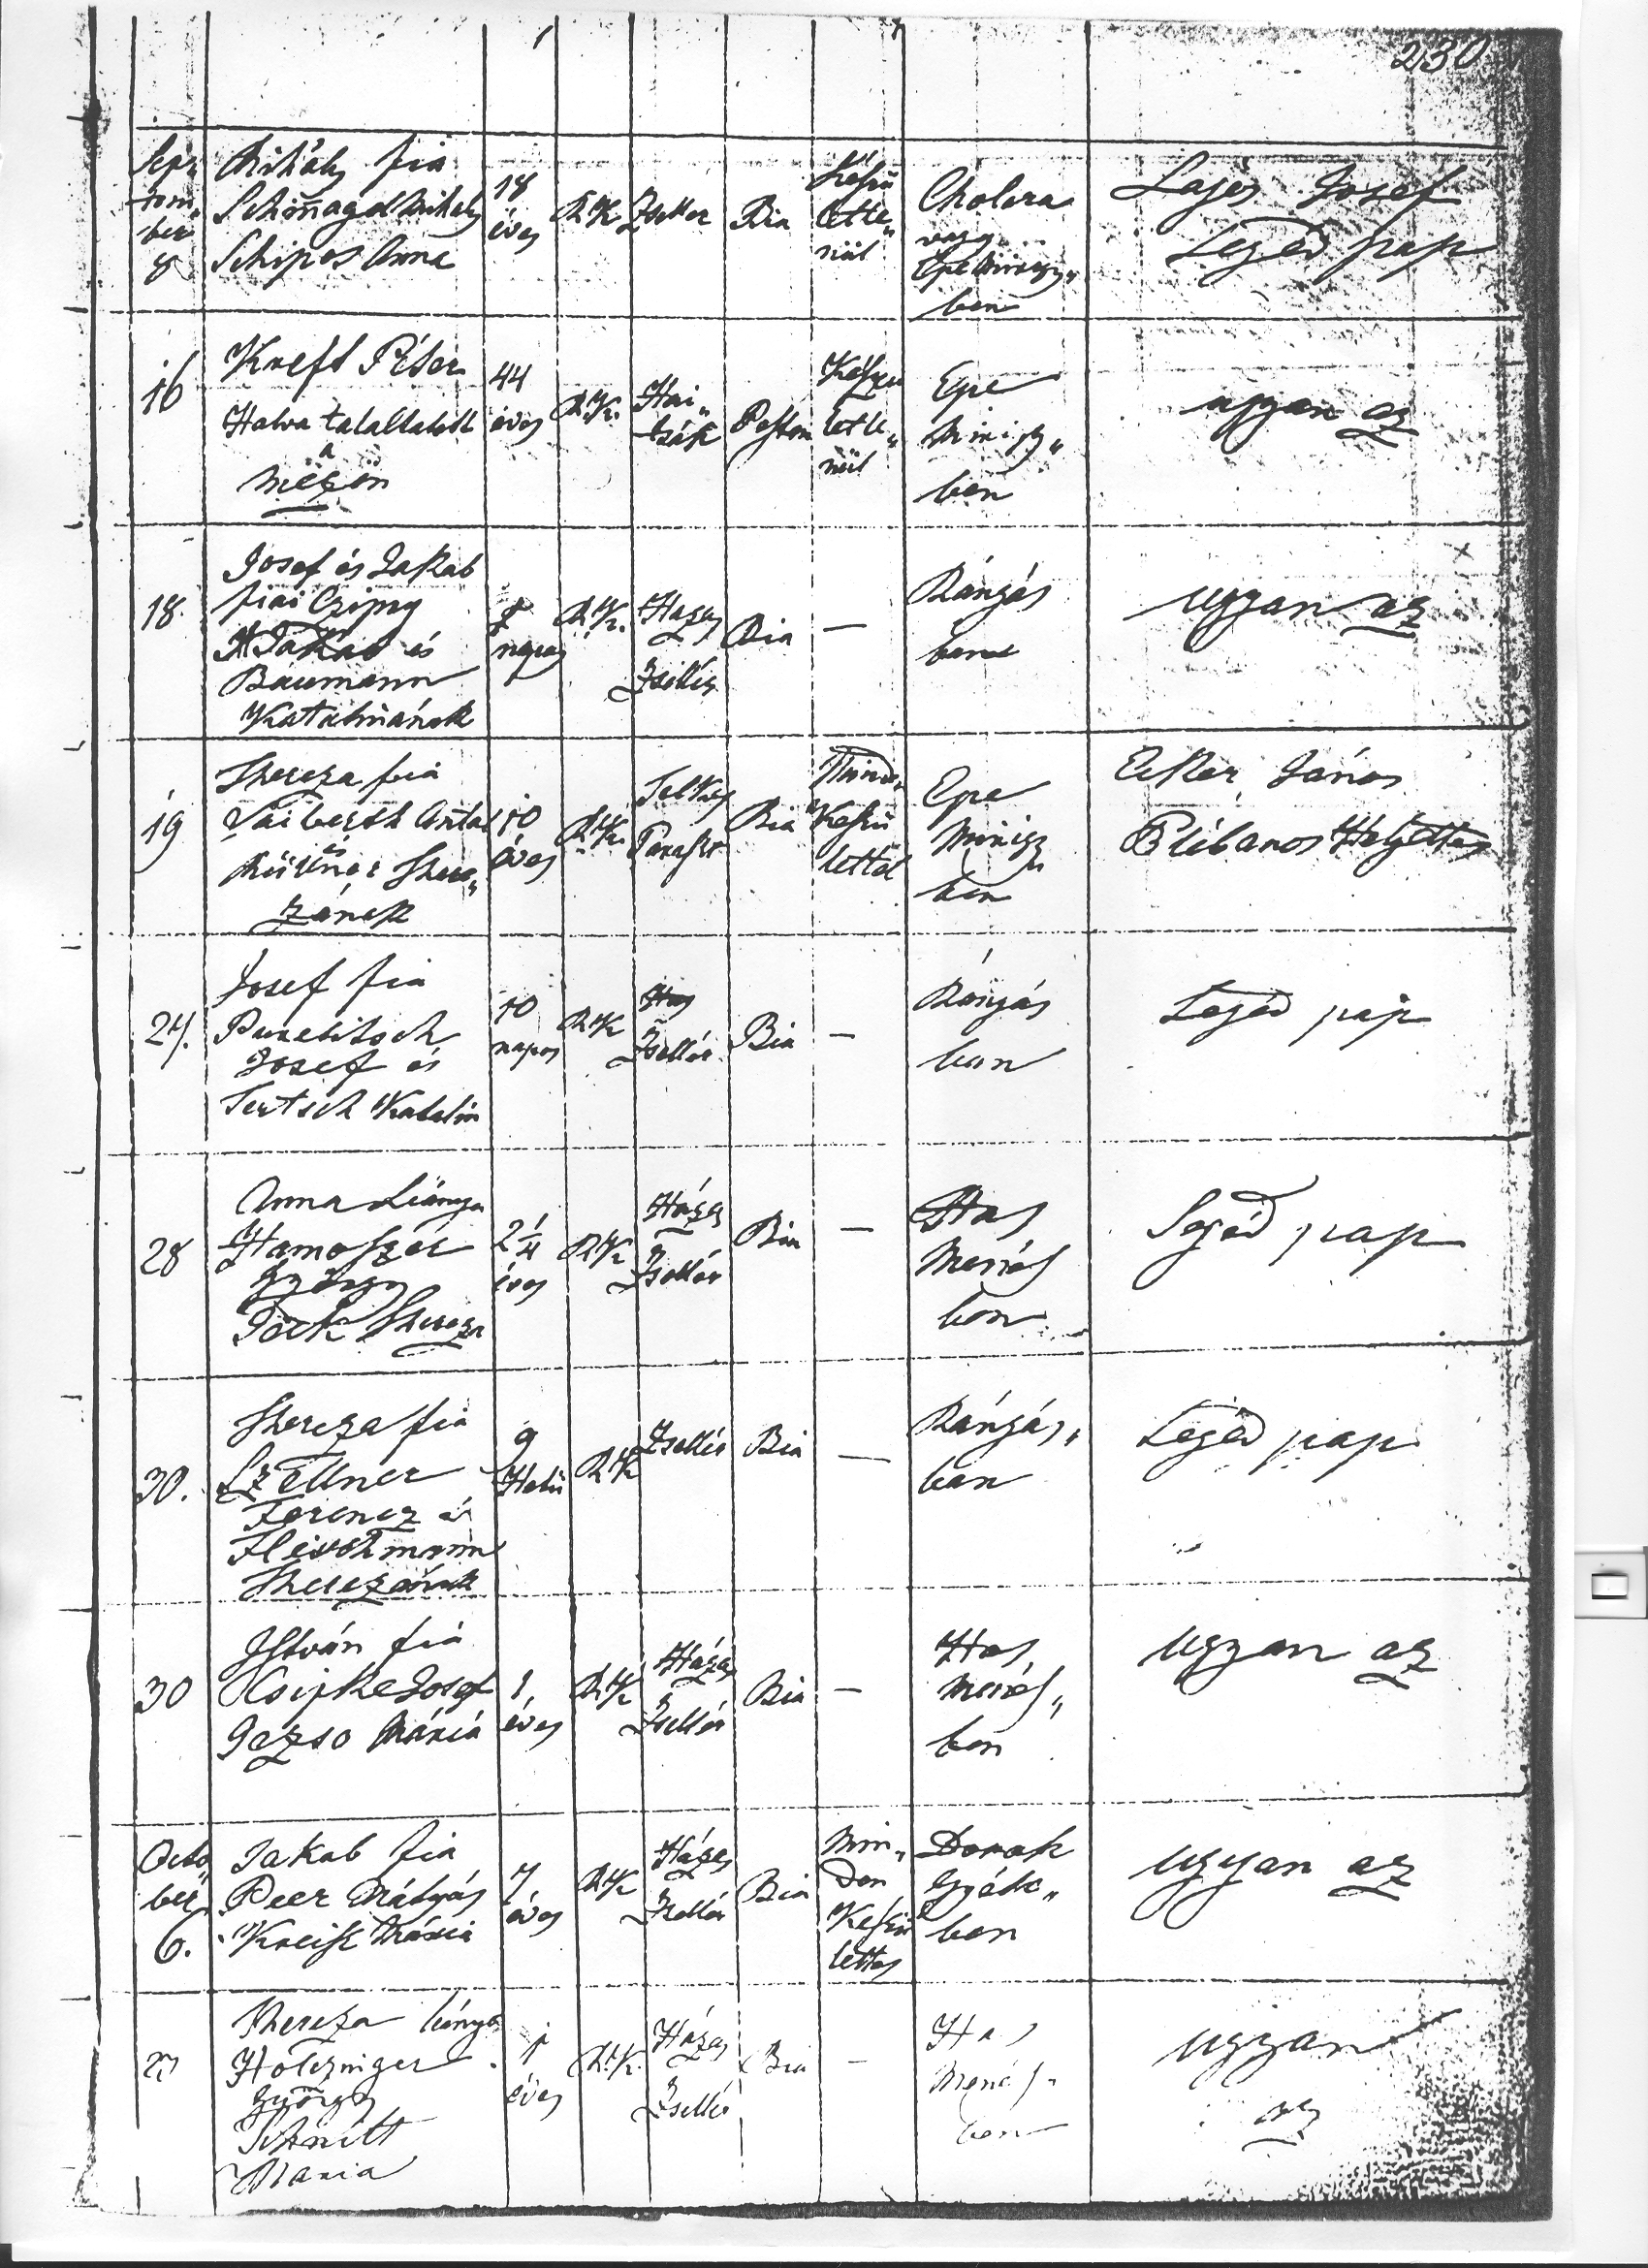 230
Sep„
tem„
ber
8
Mihály fia
Schmagel Mihaly
Schipos Anna
18
éves
R.K.
Zseller
Bia
Készü
letle„
nül
Cholera
vagy
Epe Mirigy„
ben
Lajos Josef
Segéd pap
16
Kreft Péter
Halva talaltatott
a
mezön
44
éves
R.K.
Pesten
Készü
letle„
nül
Epe
Mirigy„
ben
ugyan az
18.
Josef és Jakab
fiai Czipry
Jakab és
Baumann
Katalinának
napos
R.K.
Hazas
Zsellér
Bia
—
Rángás
ban
ugyan az
19
Thereza fia
Antal
és
There„
zának
10
éves
R.K.
Telkes
Paraszt
Bia
Készü
lettel
Epe
Mirigy
ben
Eker János
Plébanos Helyettes
24.
Josef fia
Josef és
Tertsch Katalin
10
napos
R.K.
Zsellér
Bia
—
Rángás
ban
Segéd pap
28
Anna Leánya
Hamoszér
György
Pöck Thereza
2 1/4
éves
R.K.
Házas
Zsellér
Bia
—
Has
Menés
ben
Segéd pap
30.
Thereza fia
Szellner
Ferencz és
Fleischmann
Therezának
9
Hetü
R.K.
Zsellér
Bia
—
Rángás„
ban
Segéd pap
30
István fia
Csipke Josef
Gazso Mária
1
éves
R.K.
Házas
Zsellér
Bia
—
Has
menés„
ben
ugyan az
Octo„
ber
6.
Jakab fia
Peer Mátyás
Kreisz Mária
7
éves
R.K.
Házas
Zsellér
Bia
Min„
den
Készü
lettes
Torok
Gyék„
ben
ugyan az
27
Thereza leánya
Holczinger
György
Schmitt
Maria
1
éves
R.K.
Házas
Zsellér
Bia
—
Has
Menés„
ben
ugyan
az